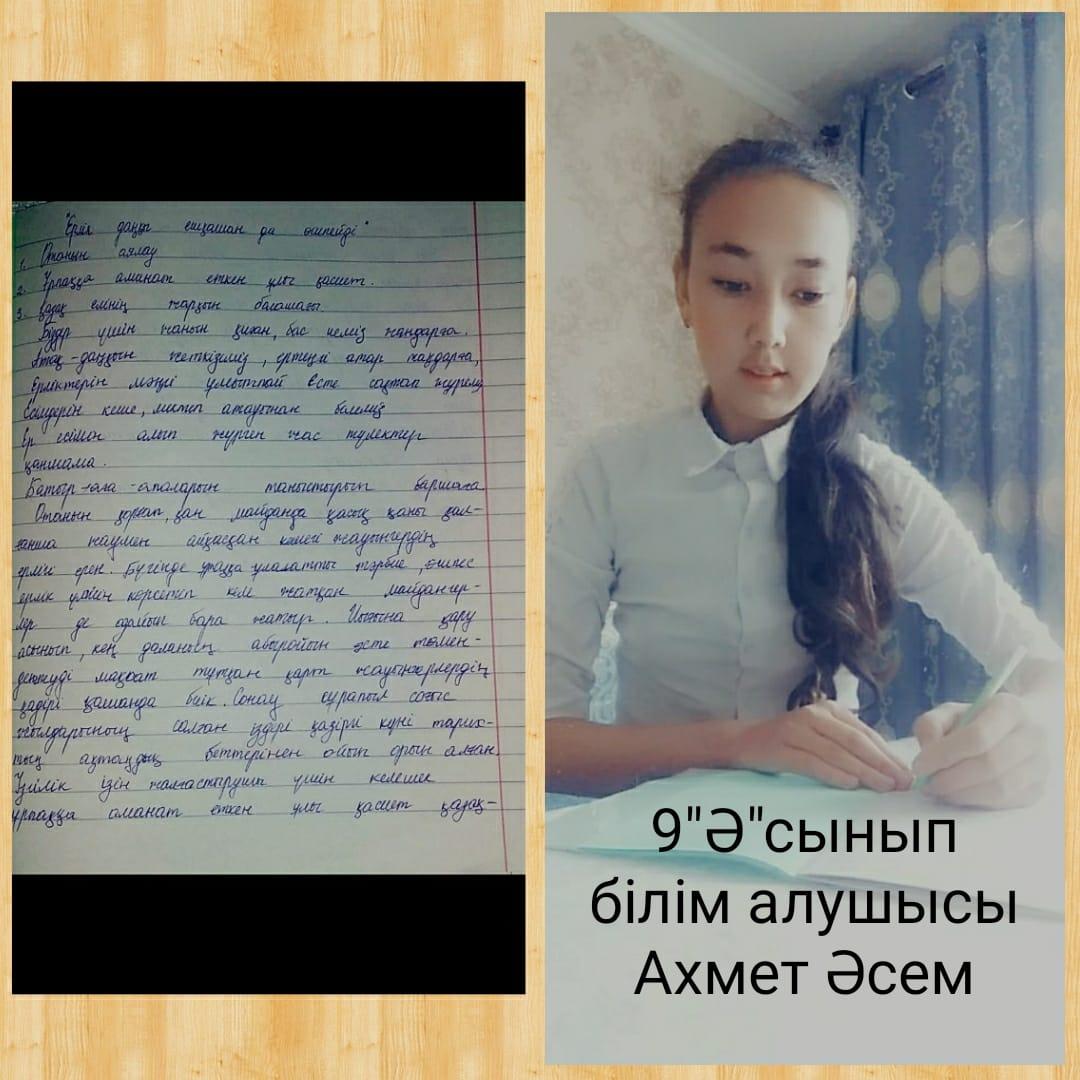 "Ерлік даңқы ешқашан да өшпейді"
1. Отанын аялау
2. Ұрпаққа аманат еткен ұлы қасиет.
3. Қазақ елінің жарқын балашағы.
Біздер үшін жанын қиған, бас иеміз жандарға.
Атақ-даңқын жеткіземіз, ертеңгі атар таңдарға,
Ерліктерін мәңгі ұмытпай есте сақтап жүреміз
Есімдерін көше, мектеп атауынан білеміз
Ер есімін алып жүрген жас түлектер
қаншама.
Батыр-аға-апаларын таныстырып баршаға
Отанын қорғап, қан майданда қасық қаны қал-
ғанша жаумен айқасқан кешегі жауынгердің
ерлігі ерен. Бүгінде ұрпаққа ұлағатты тәрбие, өшпес
ерлік үлгісін көрсетіп келе жатқан майдангер-
лер де азайып бара жатыр. Иығына қару
асынып, кең даланың абыройын әсте төмен-
детпеуді мақсат тұтқан қарт жауынгерлердің
қадірі қашанда биік. Сонау сұрапыл соғыс
жылдарының салған іздері қазіргі күні тарих-
тың ақтаңдақ беттерінен ойып орын алған
ізін жалғастырушы үшін келешек
ұрпаққа аманат еткен ұлы қасиет қазақ-
9"Ә"сынып
білім алушысы
Ахмет Әсем